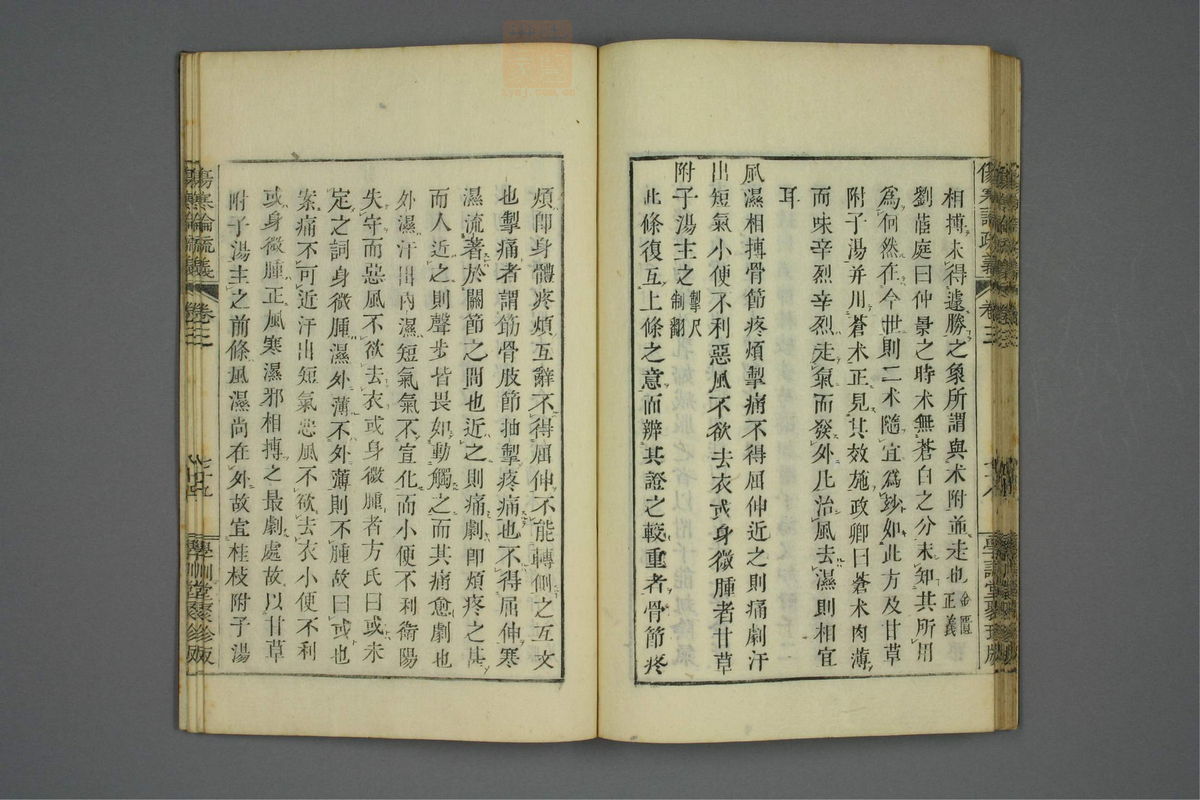 相搏未得遽勝之象所謂與术附並走也金匱正義
劉茝庭曰仲景之時术無蒼白之分未知其所用
爲何然在今世則二术隨宜爲玅如此方及甘草
附子湯并用蒼术正見其效施政卿曰蒼术肉薄
而味辛烈辛烈走氣而發外凡治風去濕則相宜
耳
風濕相搏骨節疼煩掣痛不得屈伸近之則痛劇汗
出短氣小便不利惡風不欲去衣或身微腫者甘草
附子湯主之掣尺制翻
此條復互上條之意而辨其證之較重者骨節疼
傷寒論疏義 卷三
學訓堂聚珍版
煩卽身體疼煩互辭不得屈伸不能轉側之互文
也掣痛者謂筋骨肢節抽掣疼痛也不得屈伸寒
濕流著於關節之間也近之則痛劇卽煩疼之甚
而人近之則聲步皆畏如動觸之而其痛愈劇也
外濕汗出內濕短氣氣不宣化而小便不利衛陽
失守而惡風不欲去衣或身微腫者方氏曰或未
定之詞身微腫濕外薄不外薄則不腫故曰或也
案痛不可近汗出短氣惡風不欲去衣小便不利
或身微腫正風寒濕邪相搏之最劇處故以甘草
附子湯主之前條風濕尚在外故宜桂枝附子湯
傷寒論疏義 卷三
學訓堂聚珍版